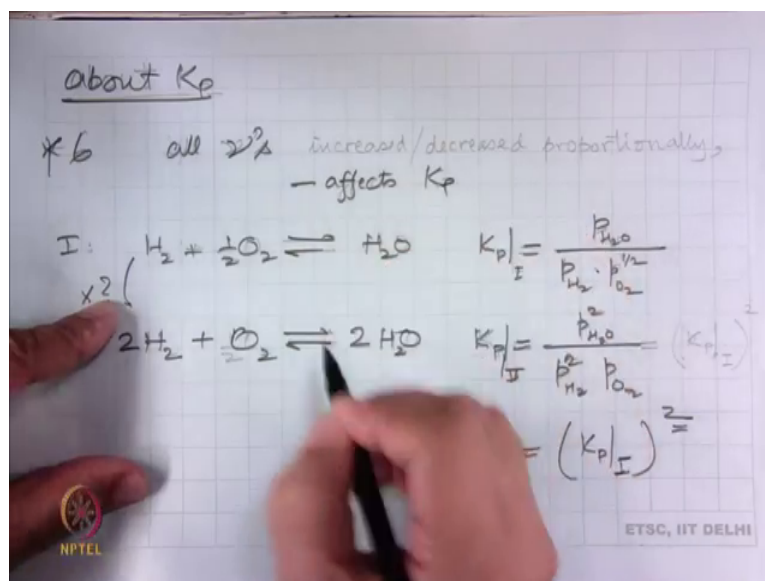 about Kp
*6 all ν's increased/decreased proportionally,
— affects Kp
I: H₂ + ½O₂ ⇌ H₂O Kp|I = pH₂O / pH₂ · pO₂^1/2
×2 (
2H₂ + O₂ ⇌ 2H₂O Kp|II = p²H₂O / p²H₂ pO₂ = (Kp|I)²
= (Kp|I)²
NPTEL
ETSC, IIT DELHI